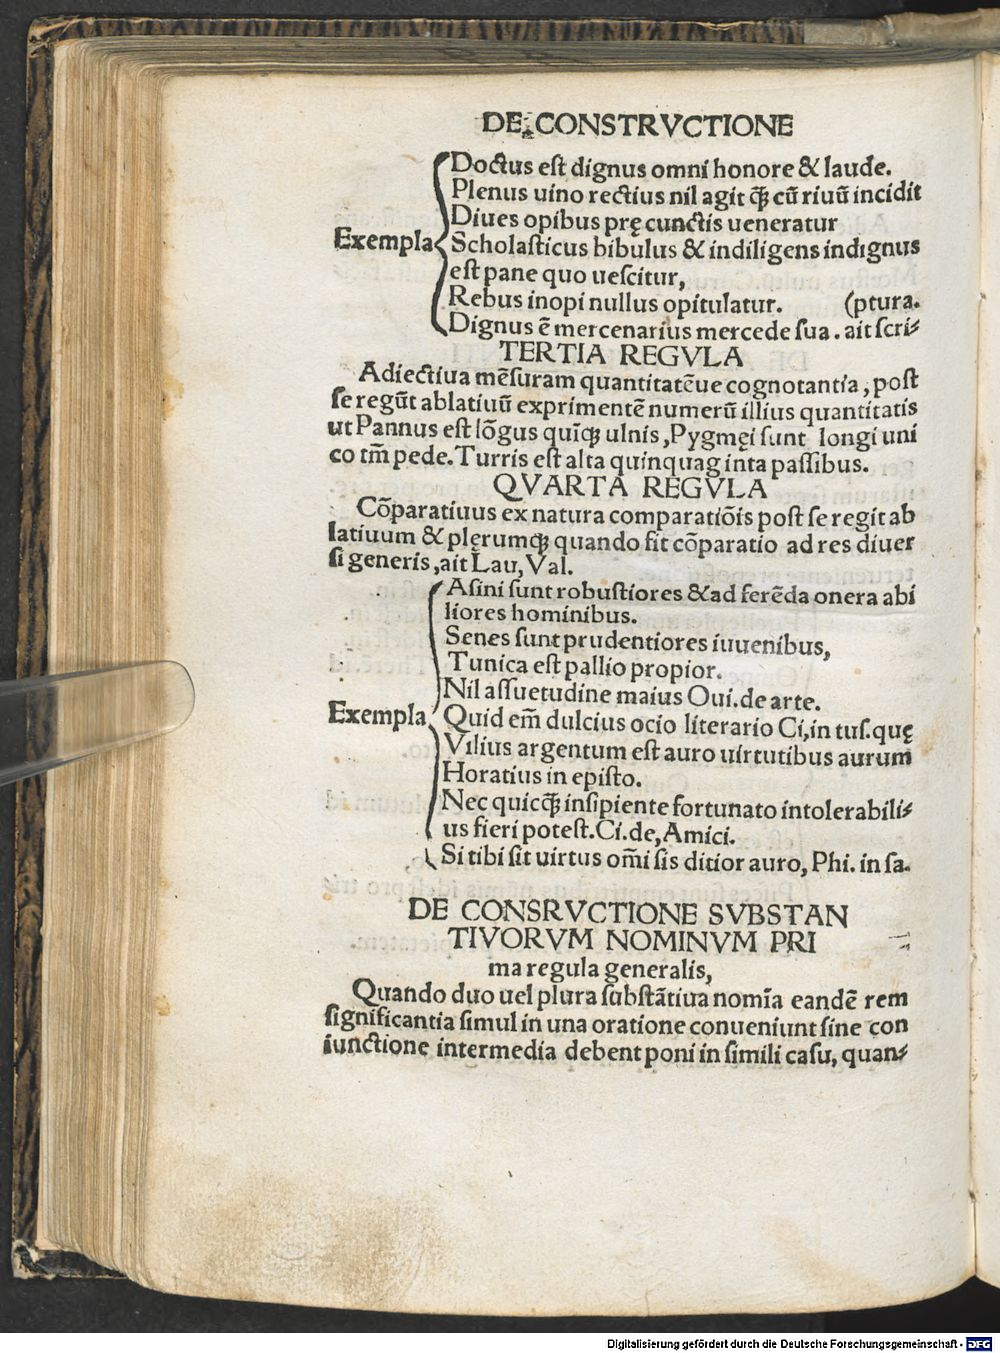 DE CONSTRVCTIONE
Doctus eſt dignus omni honore & laude.
Plenus uino rectius nil agit q̄ꝫ cū riuū incidit
Diues opibus prę cunctis ueneratur
Exempla Scholaſticus bibulus & indiligens indignus
eſt pane quo ueſcitur,
Rebus inopi nullus opitulatur. (ptura.
Dignus ē mercenarius mercede ſua. ait ſcri⸗
TERTIA REGVLA
Adiectiua mēſuram quantitatēue cognotantia, poſt
ſe regūt ablatiuū exprimentē numerū illius quantitatis
ut Pannus eſt lōgus quīqꝫ ulnis, Pygmęi ſunt longi uni
co tm̄ pede. Turris eſt alta quinquaginta paſſibus.
QVARTA REGVLA
Cōparatiuus ex natura comparatiōis poſt ſe regit ab
latiuum & plęrumqꝫ quando fit cōparatio ad res diuer
ſi generis, ait Lau, Val.
Aſini ſunt robuſtiores & ad ferēda onera abi
liores hominibus.
Senes ſunt prudentiores iuuenibus,
Tunica eſt pallio propior.
Nil aſſuetudine maius Oui. de arte.
Exempla Quid em̄ dulcius ocio literario Ci, in tuſ. quę
Vilius argentum eſt auro uirtutibus aurum
Horatius in epiſto.
Nec quicq̄ꝫ inſipiente fortunato intolerabili⸗
us fieri poteſt. Ci. de, Amici.
Si tibi ſit uirtus om̄i ſis ditior auro, Phi. in ſa.
DE CONSRVCTIONE SVBSTAN
TIVORVM NOMINVM PRI
ma regula generalis,
Quando duo uel plura ſubſtātiua nomīa eandē rem
ſignificantia ſimul in una oratione conueniunt ſine con
iunctione intermedia debent poni in ſimili caſu, quan⸗
Digitalisierung gefördert durch die Deutsche Forschungsgemeinschaft - DFG